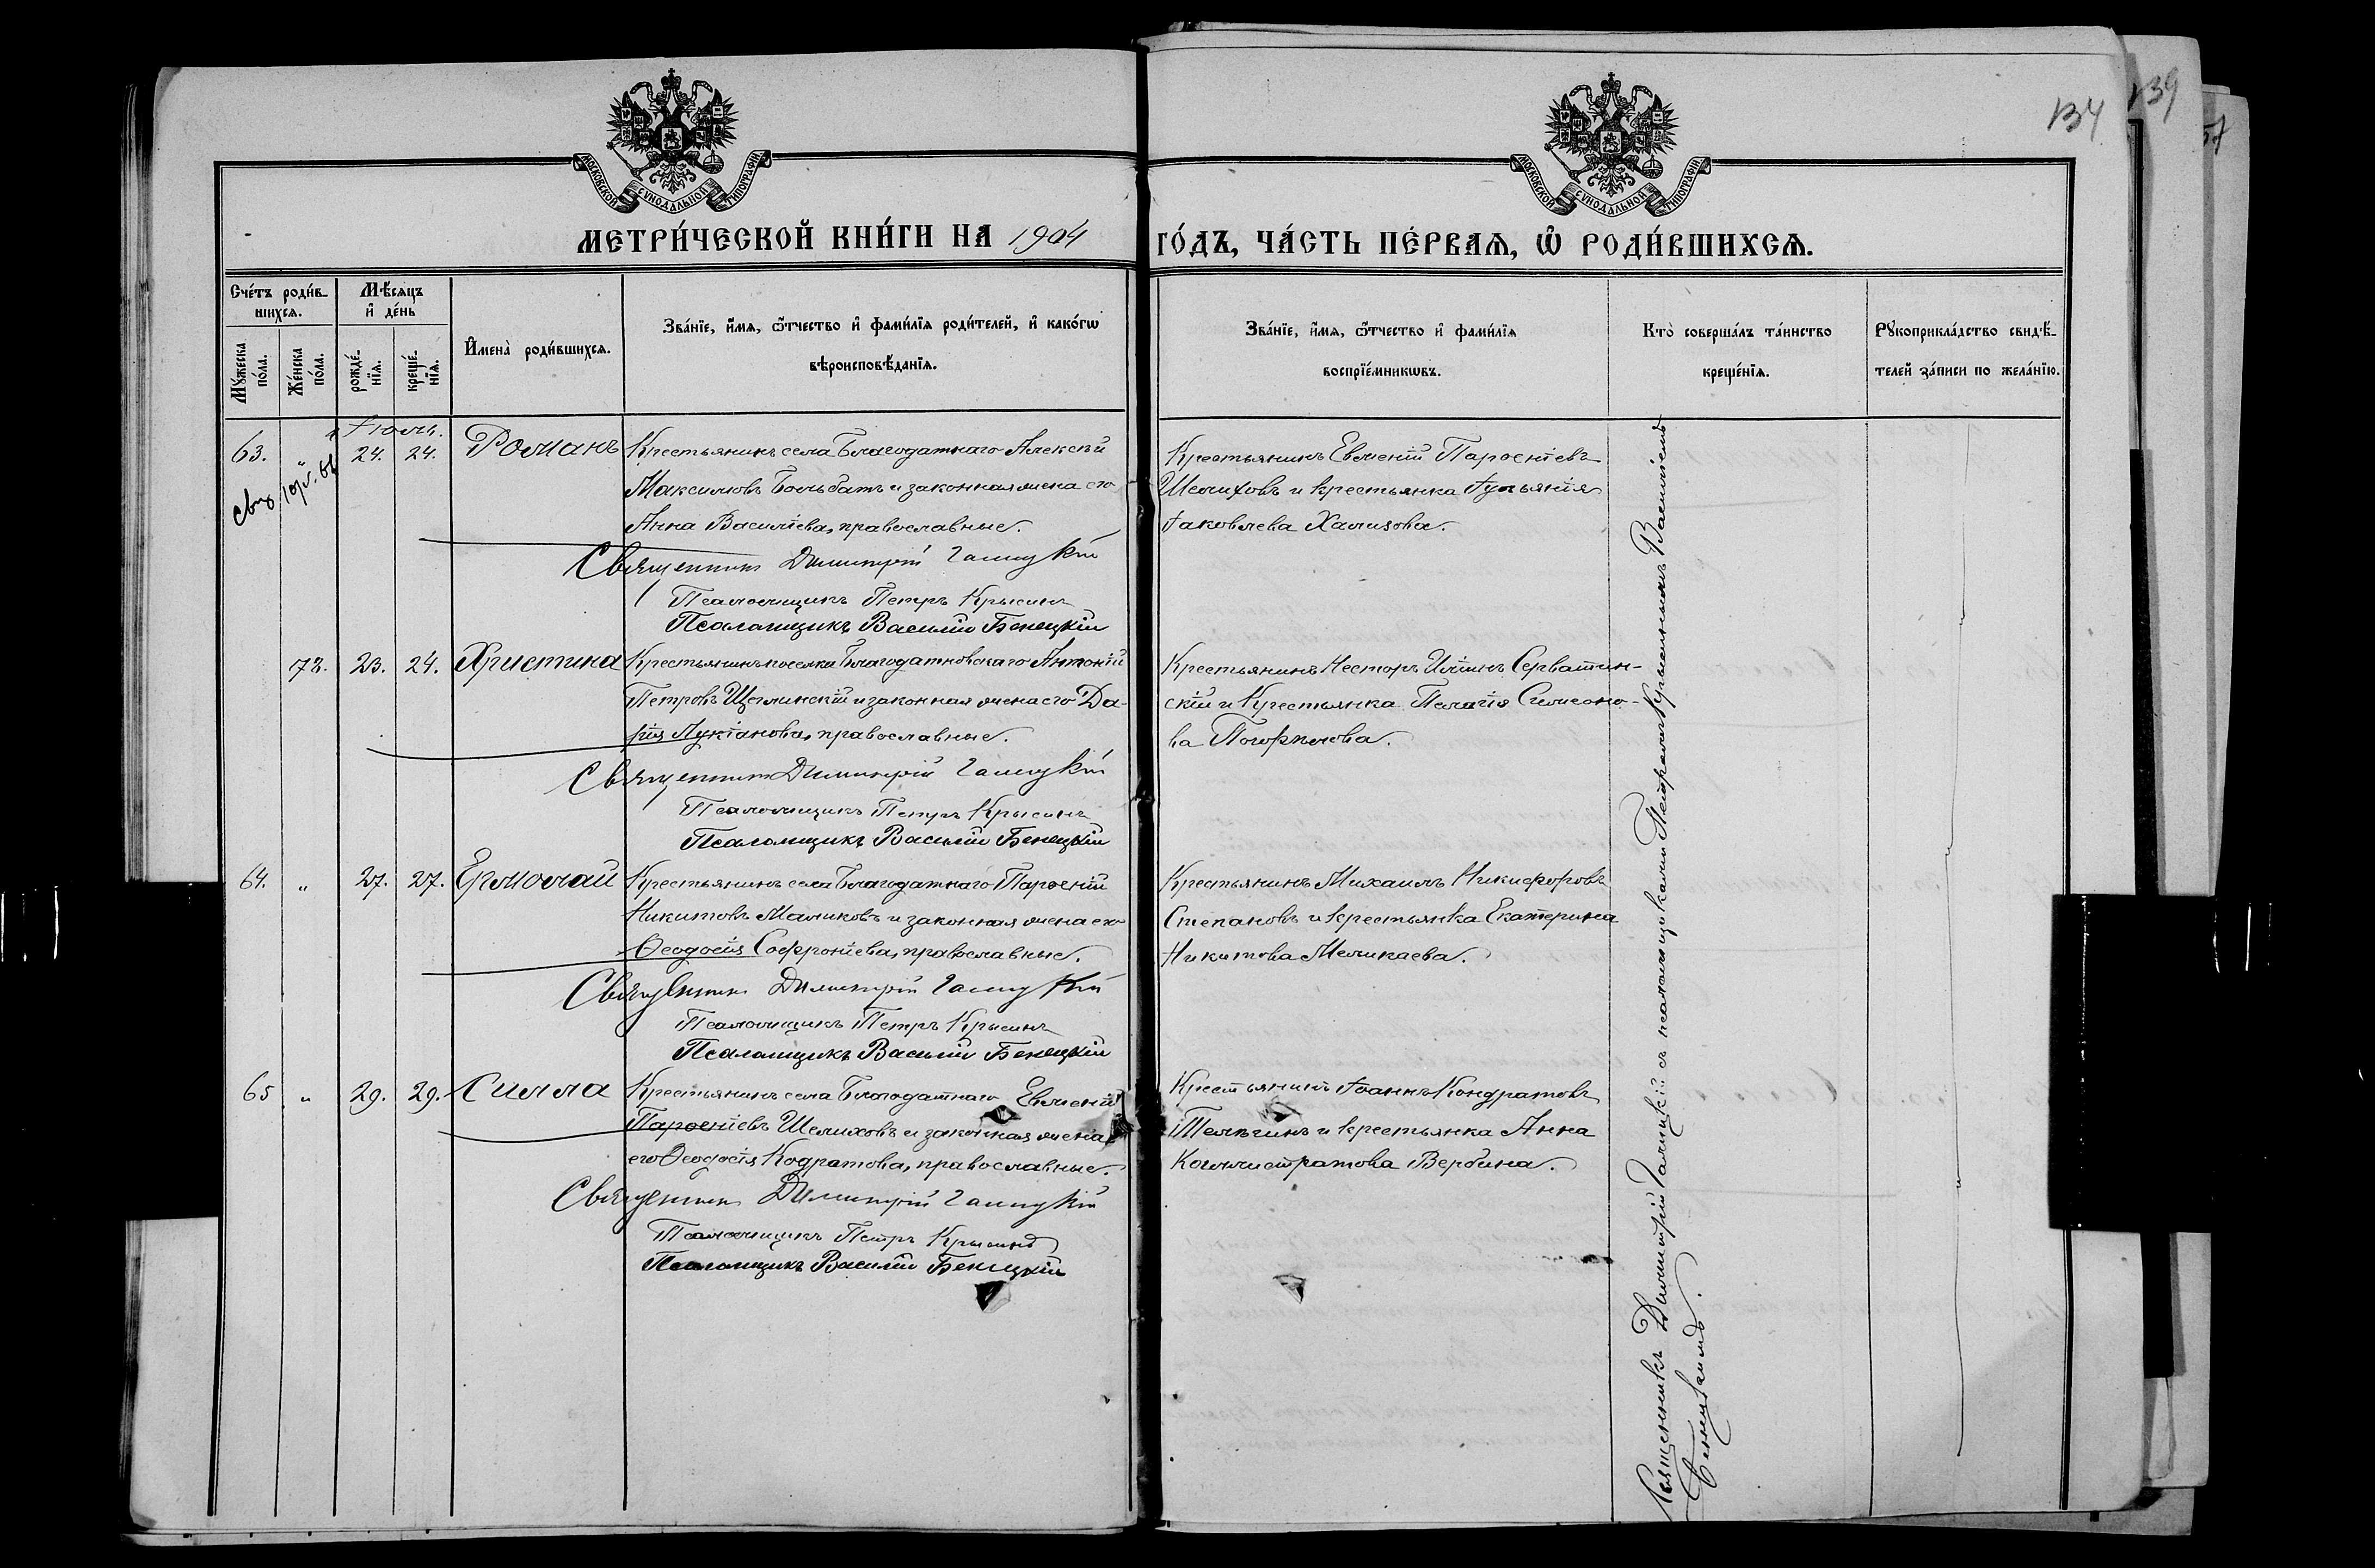 134
139
МОСКОВСКОЙ СУНОДАЛЬНОЙ ТИПОГРАФІИ
МОСКОВСКОЙ СУНОДАЛЬНОЙ ТИПОГРАФІИ
МЕТРИ́ЧЕСКОЙ КНИ́ГИ НА 1904
ГО́ДЪ, ЧА́СТЬ ПЕ́РВАѦ, Ѽ РОДИ́ВШИХСѦ.
Сче́тъ роди́в-
шихсѧ.
Му́жеска по́ла.
Же́нска по́ла.
Мѣ́сѧцъ
и҆ де́нь
рожде́-
нїѧ.
креще́-
нїѧ.
И҆мена̀ роди́вшихсѧ.
Зва́нїе, и҆́мѧ, ѻ҆́тчество и҆ фами́лїѧ роди́телей, и҆ како́гѡ
вѣроисповѣ́данїѧ.
Зва́нїе, и҆́мѧ, ѻ҆́тчество и҆ фами́лїѧ
воспрїе́мникѡвъ.
Кто̀ соверша́лъ та́инство
креще́нїѧ.
Рꙋкоприкла́дство свидѣ́-
телей за́писи по жела́нїю.
Іюль.
63. " 24. 24. Романъ
Крестьянинъ села Благодатнаго Алексѣй
Максимовъ и законная жена его
Анна Василіева, православные.
Священникъ Димитрій Галицкій
Псаломщикъ Петръ Крысинъ
Псаломщикъ Василій Бенецкій
Крестьянинъ Евменій Парѳеніевъ
Шелиховъ и крестьянка Іуліанія
Іаковлева Хализова.
73. 23. 24. Христина
Крестьянинъ поселка Благодатновскаго Антоній
Петровъ Щеглинскій и законная жена его Да-
рія Лукіанова, православные.
Священникъ Димитрій Галицкій
Псаломщикъ Петръ Крысинъ
Псаломщикъ Василій Бенецкій
Крестьянинъ Несторъ Иліинъ Серватин-
скій и крестьянка Пелагія Симеоно-
ва Погорѣлова.
64. " 27. 27. Ермолай
Крестьянинъ села Благодатнаго Парѳеній
Никитовъ Маликовъ и законная жена его
Ѳеодосія Софроніева, православные.
Священникъ Димитрій Галицкій
Псаломщикъ Петръ Крысинъ
Псаломщикъ Василій Бенецкій
Крестьянинъ Михаилъ Никифоровъ
Степановъ и крестьянка Екатерина
Никитова Меликаева.
65 " 29. 29. Силла
Крестьянинъ села Благодатнаго Евменій
Парѳеніевъ Шелиховъ и законная жена
его Ѳеодосія Кодратова, православные.
Священникъ Димитрій Галицкій
Псаломщикъ Петръ Крысинъ
Псаломщикъ Василій Бенецкій
Крестьянинъ Іоаннъ Кондратовъ
Телѣгинъ и крестьянка Анна
Каллистратова Вербина.
Священникъ Димитрій Галицкій съ псаломщиками Петромъ Крысинымъ и Василіемъ
Бенецкимъ.